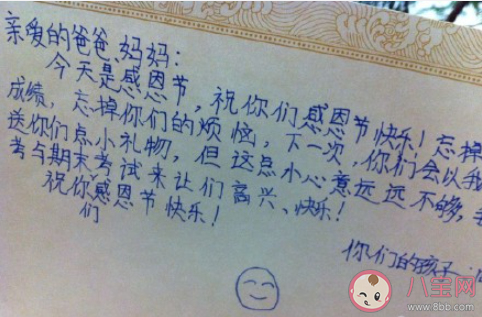 亲爱的爸爸、妈妈：
今天是感恩节，祝你们感恩节快乐！忘掉
成绩，忘掉你们的烦恼，下一次，你们会以我
送你们点小礼物，但这点小心意远远不够，
考与期末考试来让们高兴、快乐！
祝你们感恩节快乐！
你们的孩子：
八宝网
www.8bb.com